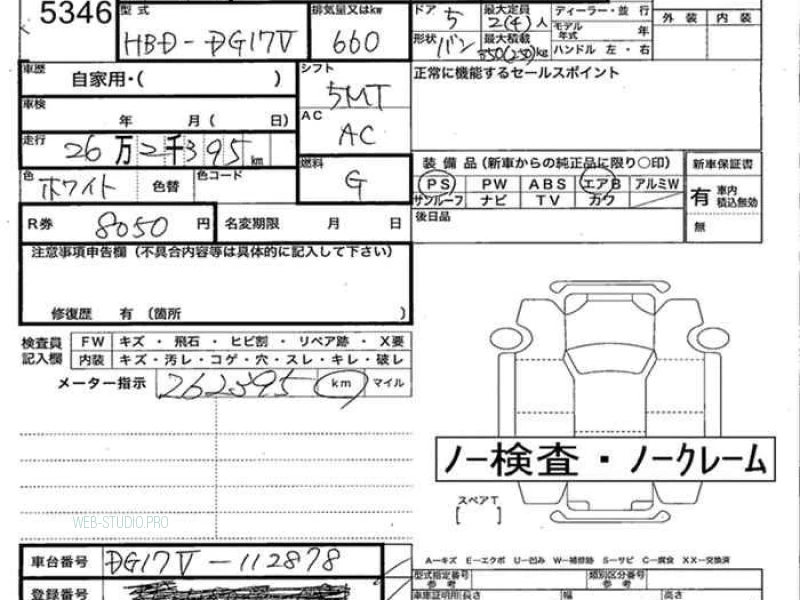 5346 型式 HBD-DG17V 排気量又はkw 660
ドア 5 最大定員 2(4)人 ディーラー・並 行
形状 バン 最大積載 350(250)kg モデル年式 年 ハンドル 左・右
外装 内装
車歴 自家用・( )
シフト 5MT
正常に機能するセールスポイント
車検 年 月( 日)
AC AC
走行 26万2千395km
燃料 G
色 ホワイト 色替 色コード
R券 8050円 名変期限 月 日
装備品(新車からの純正品に限り〇印)
PS PW ABS エアB アルミW
サンルーフ ナビ TV カワ
後日品
新車保証書
有 車内積込無効
無
注意事項申告欄(不具合内容等は具体的に記入して下さい)
修復歴 有 (箇所 )
検査員記入欄
FW キズ・飛石・ヒビ割・リペア跡・X要
内装 キズ・汚レ・コゲ・穴・スレ・キレ・破レ
メーター指示 262395 km マイル
ノー検査・ノークレーム
スペアT
[ ]
WEB-STUDIO.PRO
車台番号 DG17V-112878
登録番号
A-キズ E-エクボ U-凹み W-補修跡 S-サビ C-腐食 XX-交換済
型式指定番号 参考 類別区分番号 参考
車庫証明用 長さ 幅 高さ